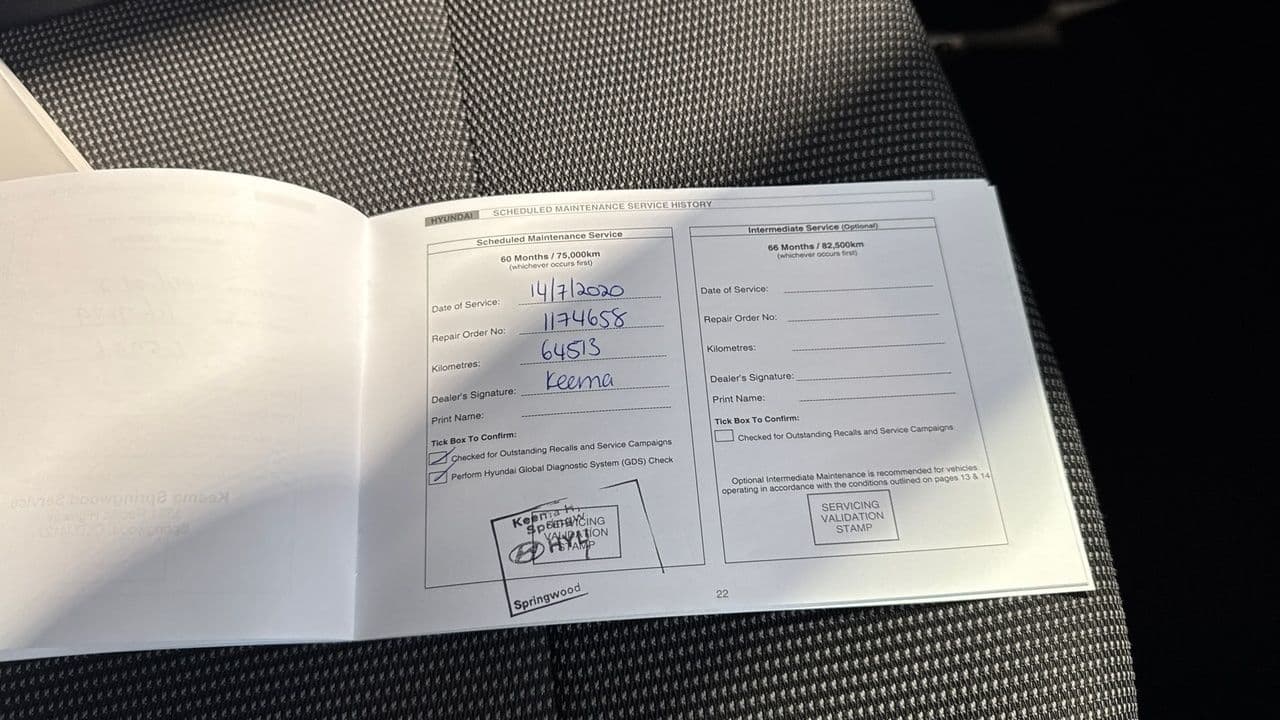 HYUNDAI SCHEDULED MAINTENANCE SERVICE HISTORY
Scheduled Maintenance Service
60 Months / 75,000km
(whichever occurs first)
Date of Service: 14/7/2020
Repair Order No: 1174658
Kilometres: 64513
Dealer's Signature: Keema
Print Name:
Tick Box To Confirm:
Checked for Outstanding Recalls and Service Campaigns
Perform Hyundai Global Diagnostic System (GDS) Check
SERVICING
VALIDATION
STAMP
Springwood
Intermediate Service (Optional)
66 Months / 82,500km
(whichever occurs first)
Date of Service:
Repair Order No:
Kilometres:
Dealer's Signature:
Print Name:
Tick Box To Confirm:
Checked for Outstanding Recalls and Service Campaigns
Optional Intermediate Maintenance is recommended for vehicles
operating in accordance with the conditions outlined on pages 13 & 14
SERVICING
VALIDATION
STAMP
22